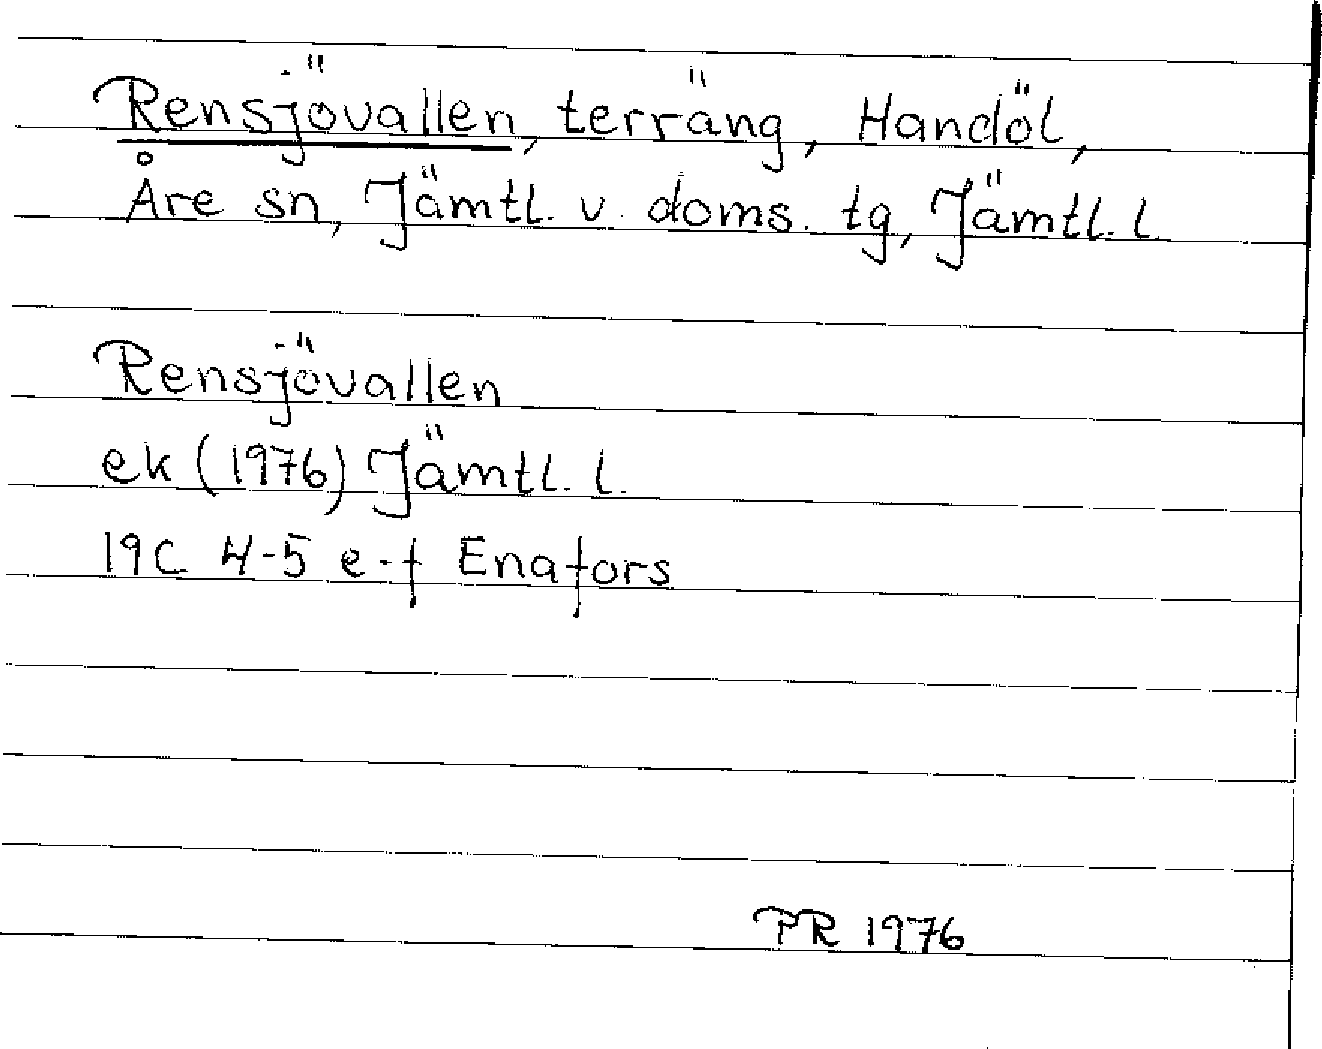 Rensjövallen, terräng, Handöl,
Åre sn, Jämtl. v. doms. tg, Jämtl. l.
Rensjövallen
ek (1976) Jämtl. l.
19C 4-5 e-f Enafors
PR 1976